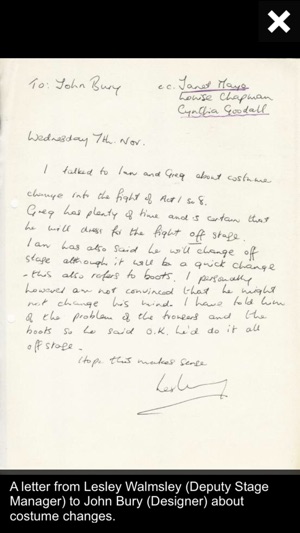 To: John Bury
c.c. Janet Mayo
Louise Chapman
Cynthia Goodall
Wednesday 7th. Nov.
I talked to Ian and Greg about costume
change into the fight of Act 1 sc 8.
Greg has plenty of time and is certain that
he will dress for the fight off stage.
Ian has also said he will change off
stage although it will be a quick change
- this also refers to boots. I personally
however am not convinced that he might
not change his mind. I have told him
of the problem of the trousers and the
boots so he said O.K. he'd do it all
off stage.
Hope this makes sense
Lesley
A letter from Lesley Walmsley (Deputy Stage
Manager) to John Bury (Designer) about
costume changes.